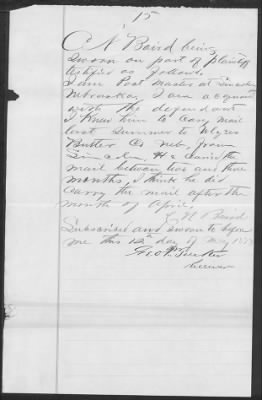 15
C N Baird being
Sworn on part of plaintiff
testifies as follows.
I am Post Master at Lincoln
Nebraska, I am acquainted
with the defendant
I knew him to carry mail
last Summer to Ulysses
Butler Co Neb, from
Lincoln, He carried the
mail between two and three
months, I think he did
carry the mail after the
month of April.
C N Baird
Subscribed and sworn to before
me this 12th day of May
Geo P. Tucker